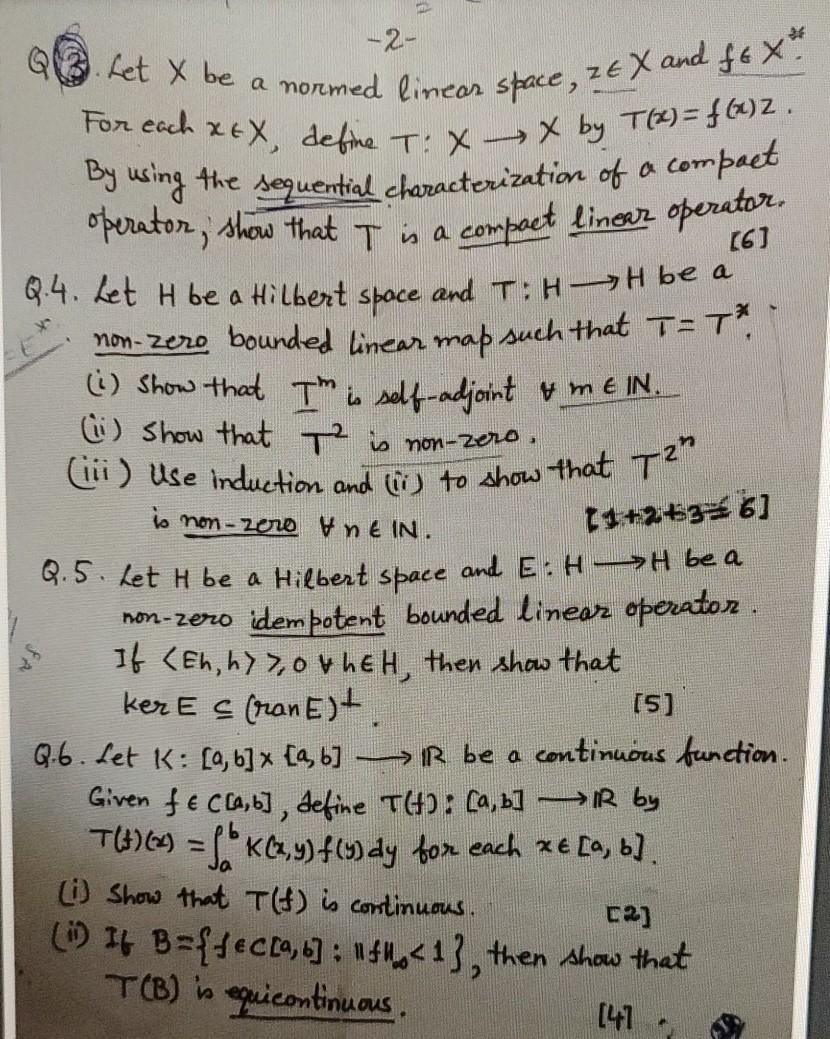 -2-
Q3. Let X be a normed linear space, z∈X and f∈X*.
For each x∈X, define T: X → X by T(x)=f(x)z.
By using the sequential characterization of a compact
operator, show that T is a compact linear operator.
[6]
Q.4. Let H be a Hilbert space and T: H → H be a
non-zero bounded linear map such that T=T*.
(i) Show that Tᵐ is self-adjoint ∀ m∈IN.
(ii) Show that T² is non-zero.
(iii) Use induction and (ii) to show that T^2^n
is non-zero ∀ n∈IN. [1+2+3=6]
Q.5. Let H be a Hilbert space and E: H → H be a
non-zero idempotent bounded linear operator.
If <Eh, h> ≥ 0 ∀ h∈H, then show that
ker E ⊆ (ran E)^⊥. [5]
Q.6. Let K: [a,b]x[a,b] → IR be a continuous function.
Given f∈C[a,b], define T(f): [a,b] → IR by
T(f)(x) = ∫ₐᵇ K(x,y)f(y)dy for each x∈[a,b].
(i) Show that T(f) is continuous. [2]
(ii) If B={f∈C[a,b] : ||f||∞<1}, then show that
T(B) is equicontinuous. [4]